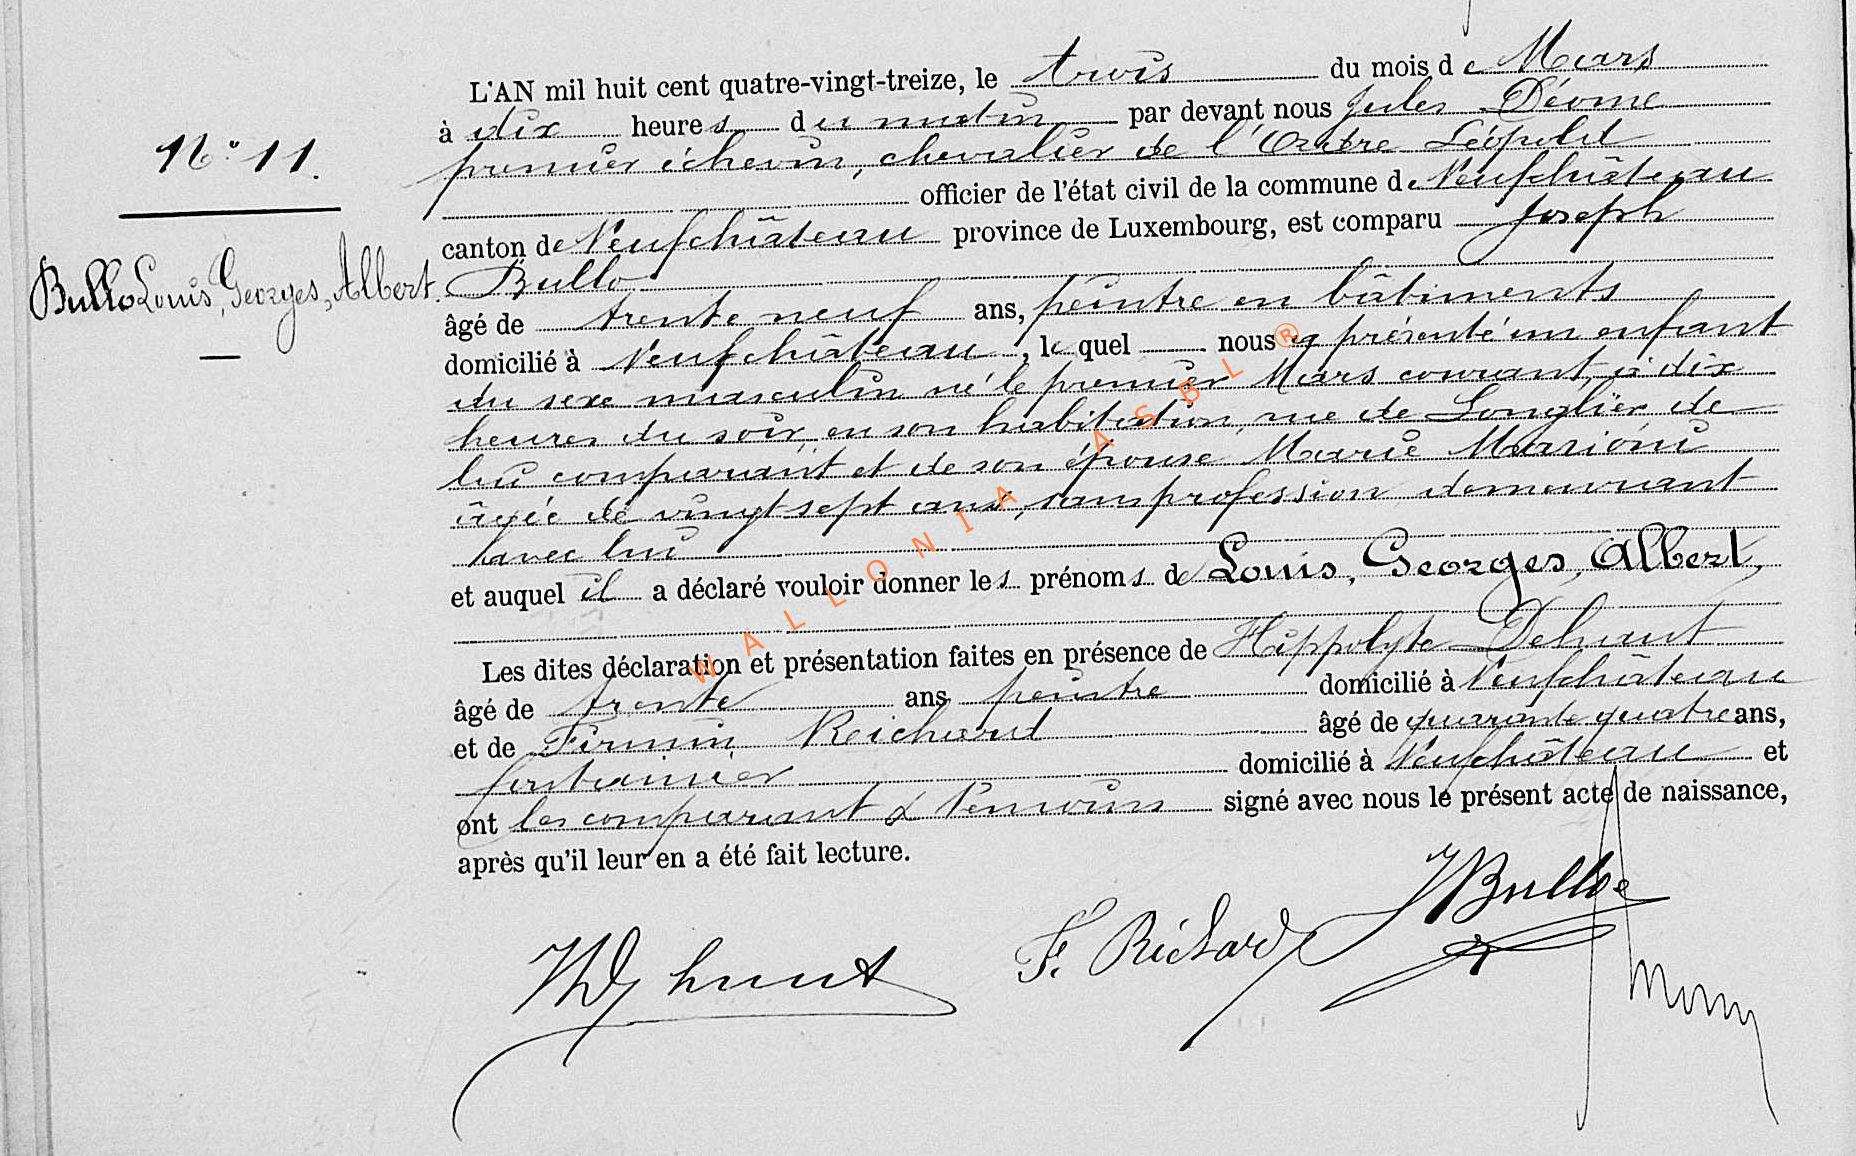 L'AN mil huit cent quatre-vingt-treize, le trois du mois de Mars
à dix heures du matin par devant nous Jules Déome
premier échevin, chevalier de l'Ordre Léopold
officier de l'état civil de la commune de Neufchâteau
canton de Neufchâteau province de Luxembourg, est comparu Joseph
Bullo
âgé de trente neuf ans, peintre en bâtiments
domicilié à Neufchâteau, lequel nous a présenté un enfant
du sexe masculin né le premier Mars courant, à dix
heures du soir, en son habitation, rue de Longlier, de
lui comparant et de son épouse Marie Marioni
âgée de vingt sept ans, sans profession demeurant
avec lui
et auquel il a déclaré vouloir donner les prénoms de Louis, Georges, Albert,
Les dites déclaration et présentation faites en présence de Hippolyte Dehaut
âgé de trente ans peintre domicilié à Neufchâteau
et de Firmin Reichard âgé de quarante quatre ans,
fontainier domicilié à Neufchâteau et
ont les comparant & témoins signé avec nous le présent acte de naissance,
après qu'il leur en a été fait lecture.
N° 11.
Bullo Louis, Georges, Albert.
F. Richard
J Bullo
WALLONIA ASBL ®